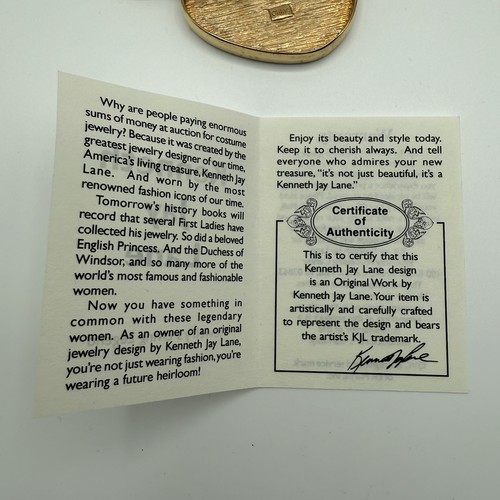 Why are people paying enormous
sums of money at auction for costume
jewelry? Because it was created by the
greatest jewelry designer of our time,
America's living treasure, Kenneth Jay
Lane. And worn by the most
renowned fashion icons of our time.
Tomorrow's history books will
record that several First Ladies have
collected his jewelry. So did a beloved
English Princess. And the Duchess of
Windsor, and so many more of the
world's most famous and fashionable
women.
Now you have something in
common with these legendary
women. As an owner of an original
jewelry design by Kenneth Jay Lane,
you're not just wearing fashion, you're
wearing a future heirloom!
Enjoy its beauty and style today.
Keep it to cherish always. And tell
everyone who admires your new
treasure, "it's not just beautiful, it's a
Kenneth Jay Lane."
Certificate
of
Authenticity
This is to certify that this
Kenneth Jay Lane design
is an Original Work by
Kenneth Jay Lane. Your item is
artistically and carefully crafted
to represent the design and bears
the artist's KJL trademark.
Kenneth Jay Lane